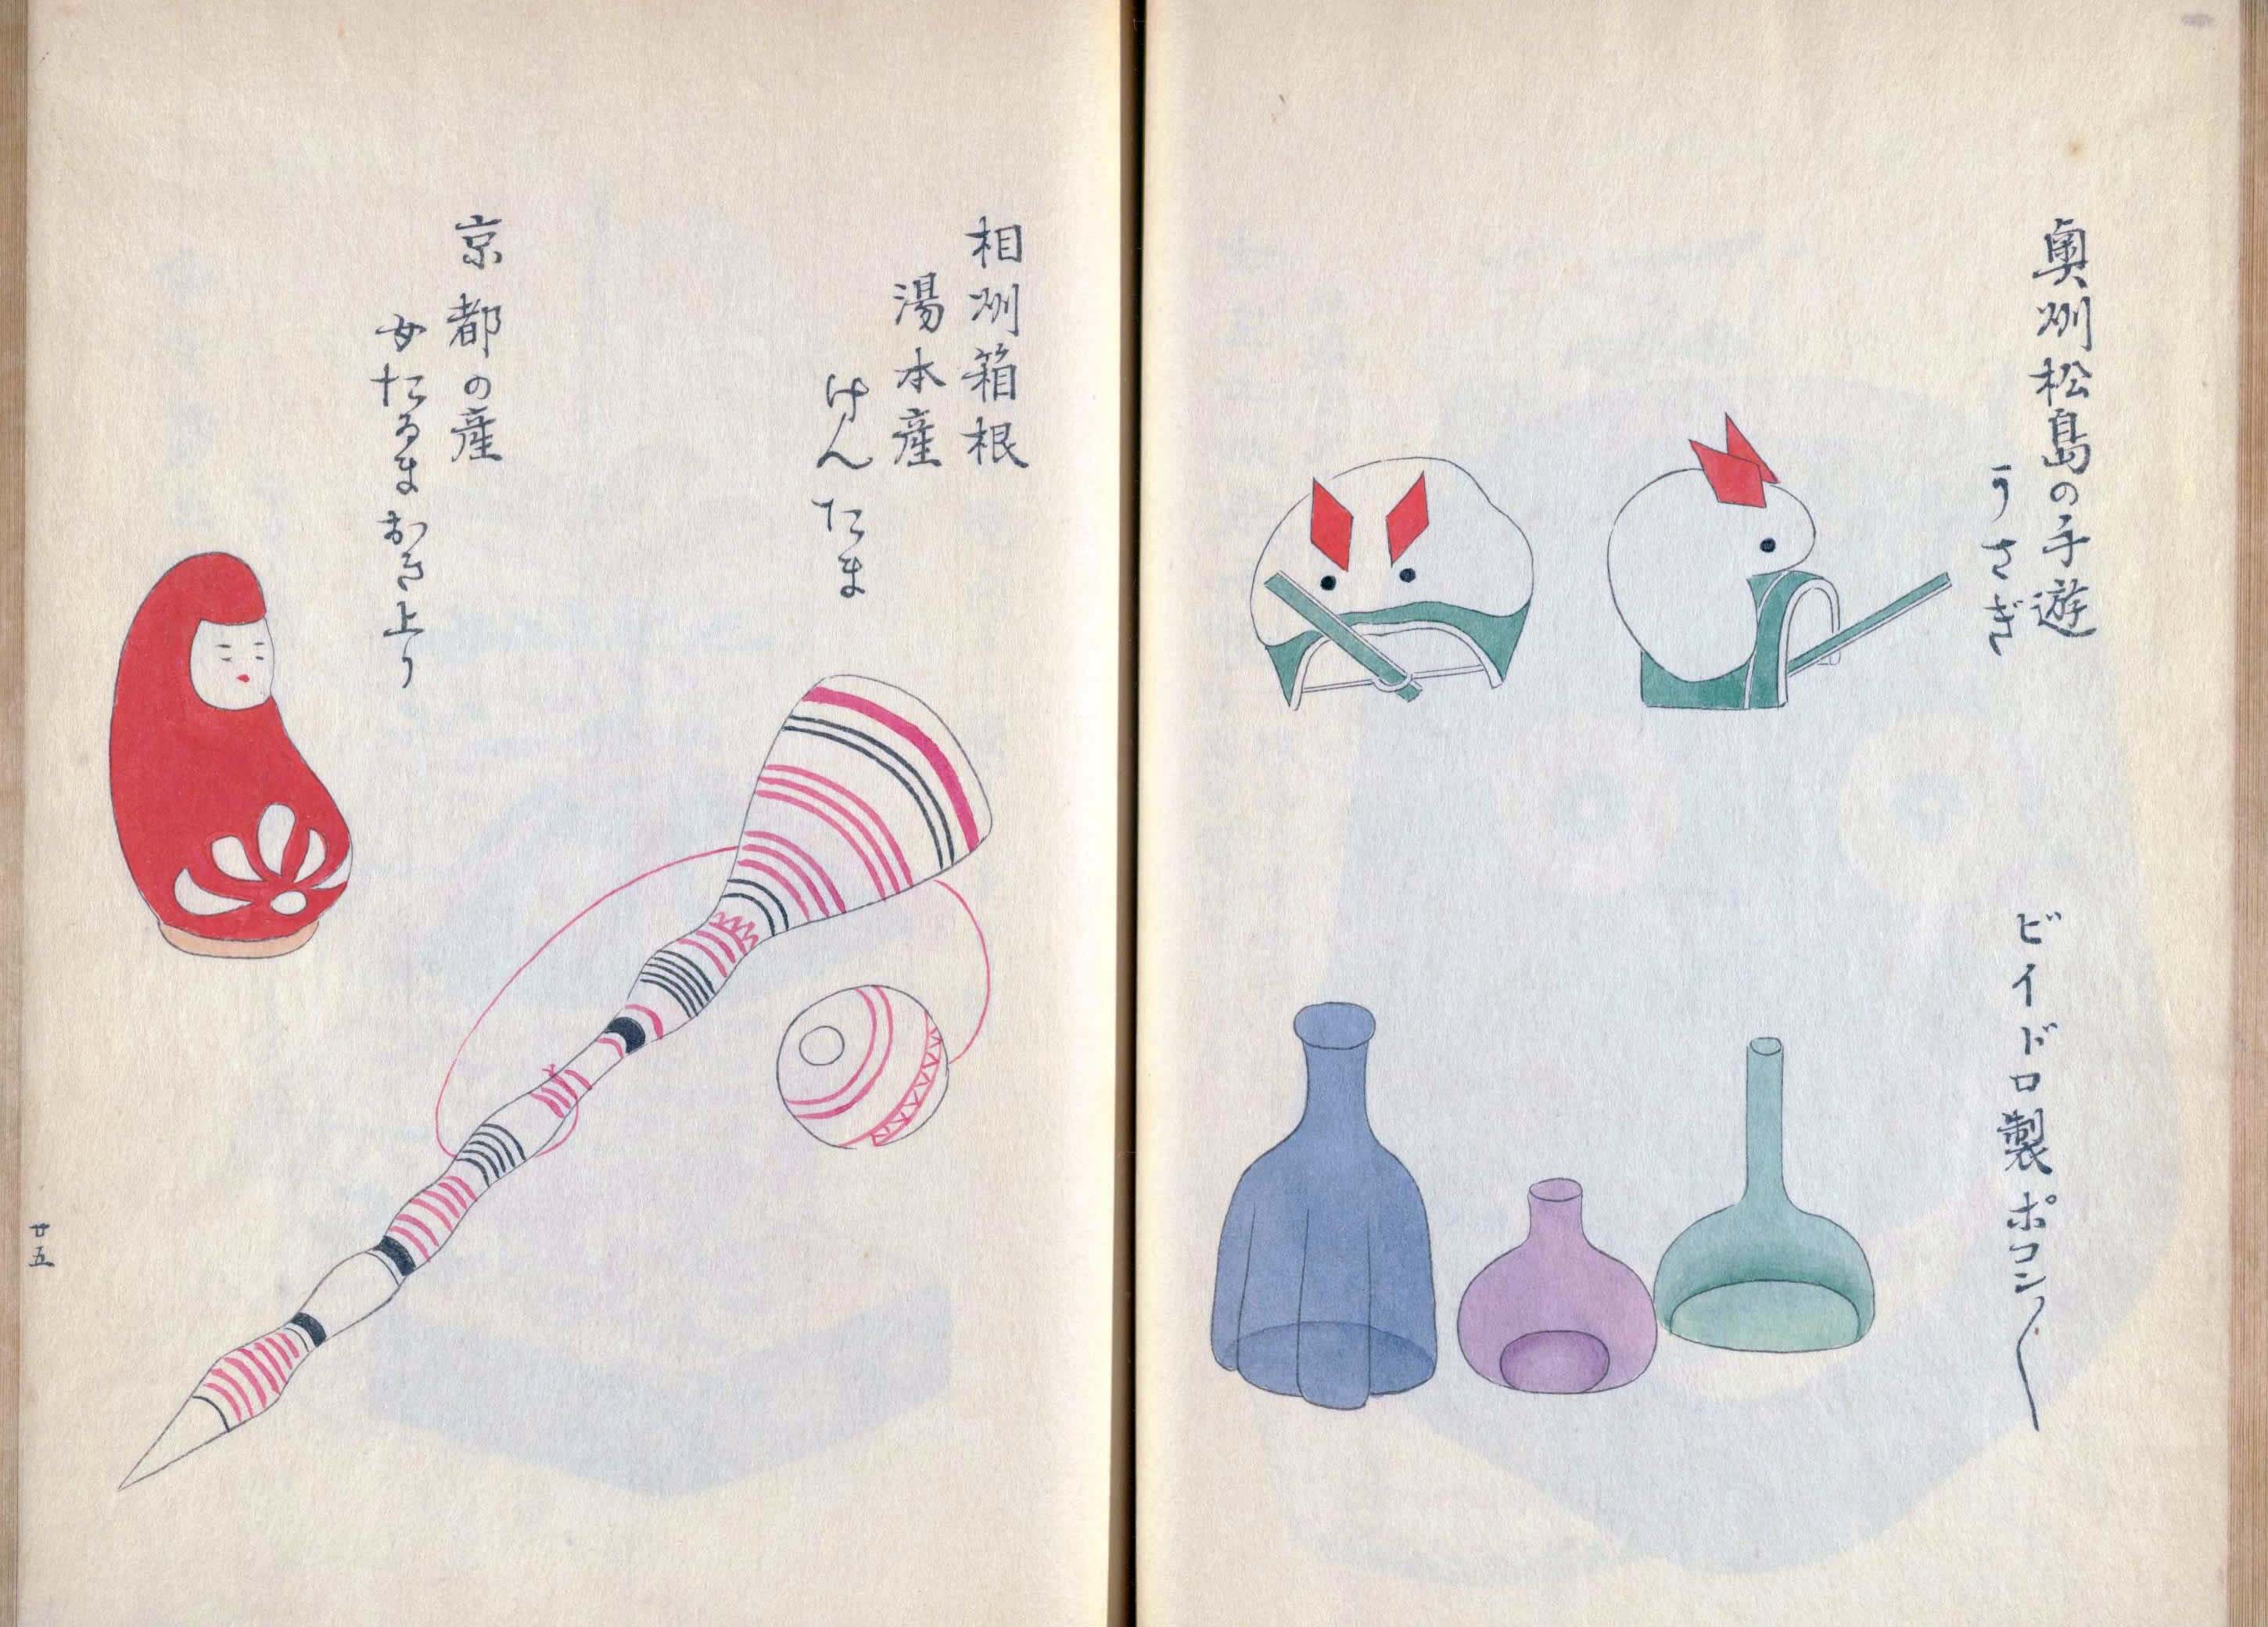 奥州松島の手遊
うさぎ
ビイドロ製ポコン〱
相州箱根
湯本産
けんたま
京都の産
女たるまおき上り
廿五